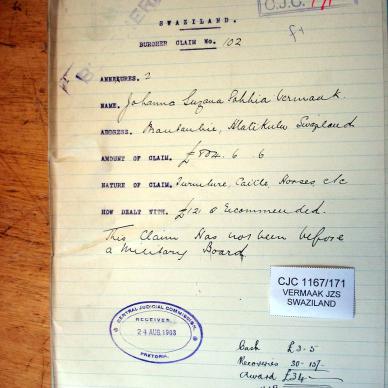 C.J.C.
SWAZILAND.
BURGHER CLAIM No. 102
ANNEXURES. 2
NAME. Johanna Suzana Sophia Vermaak.
ADDRESS. Hlatikulu Swaziland
AMOUNT OF CLAIM. £804. 6. 6
NATURE OF CLAIM. Furniture, Cattle, Horses, etc
HOW DEALT WITH. £121 Recommended.
This Claim Has not been before
a Military Board
CJC 1167/171
VERMAAK JZS
SWAZILAND
CENTRAL JUDICIAL COMMISSION.
RECEIVED
24 AUG. 1903
PRETORIA.
Cash £3.5
30-10/-
Award £34